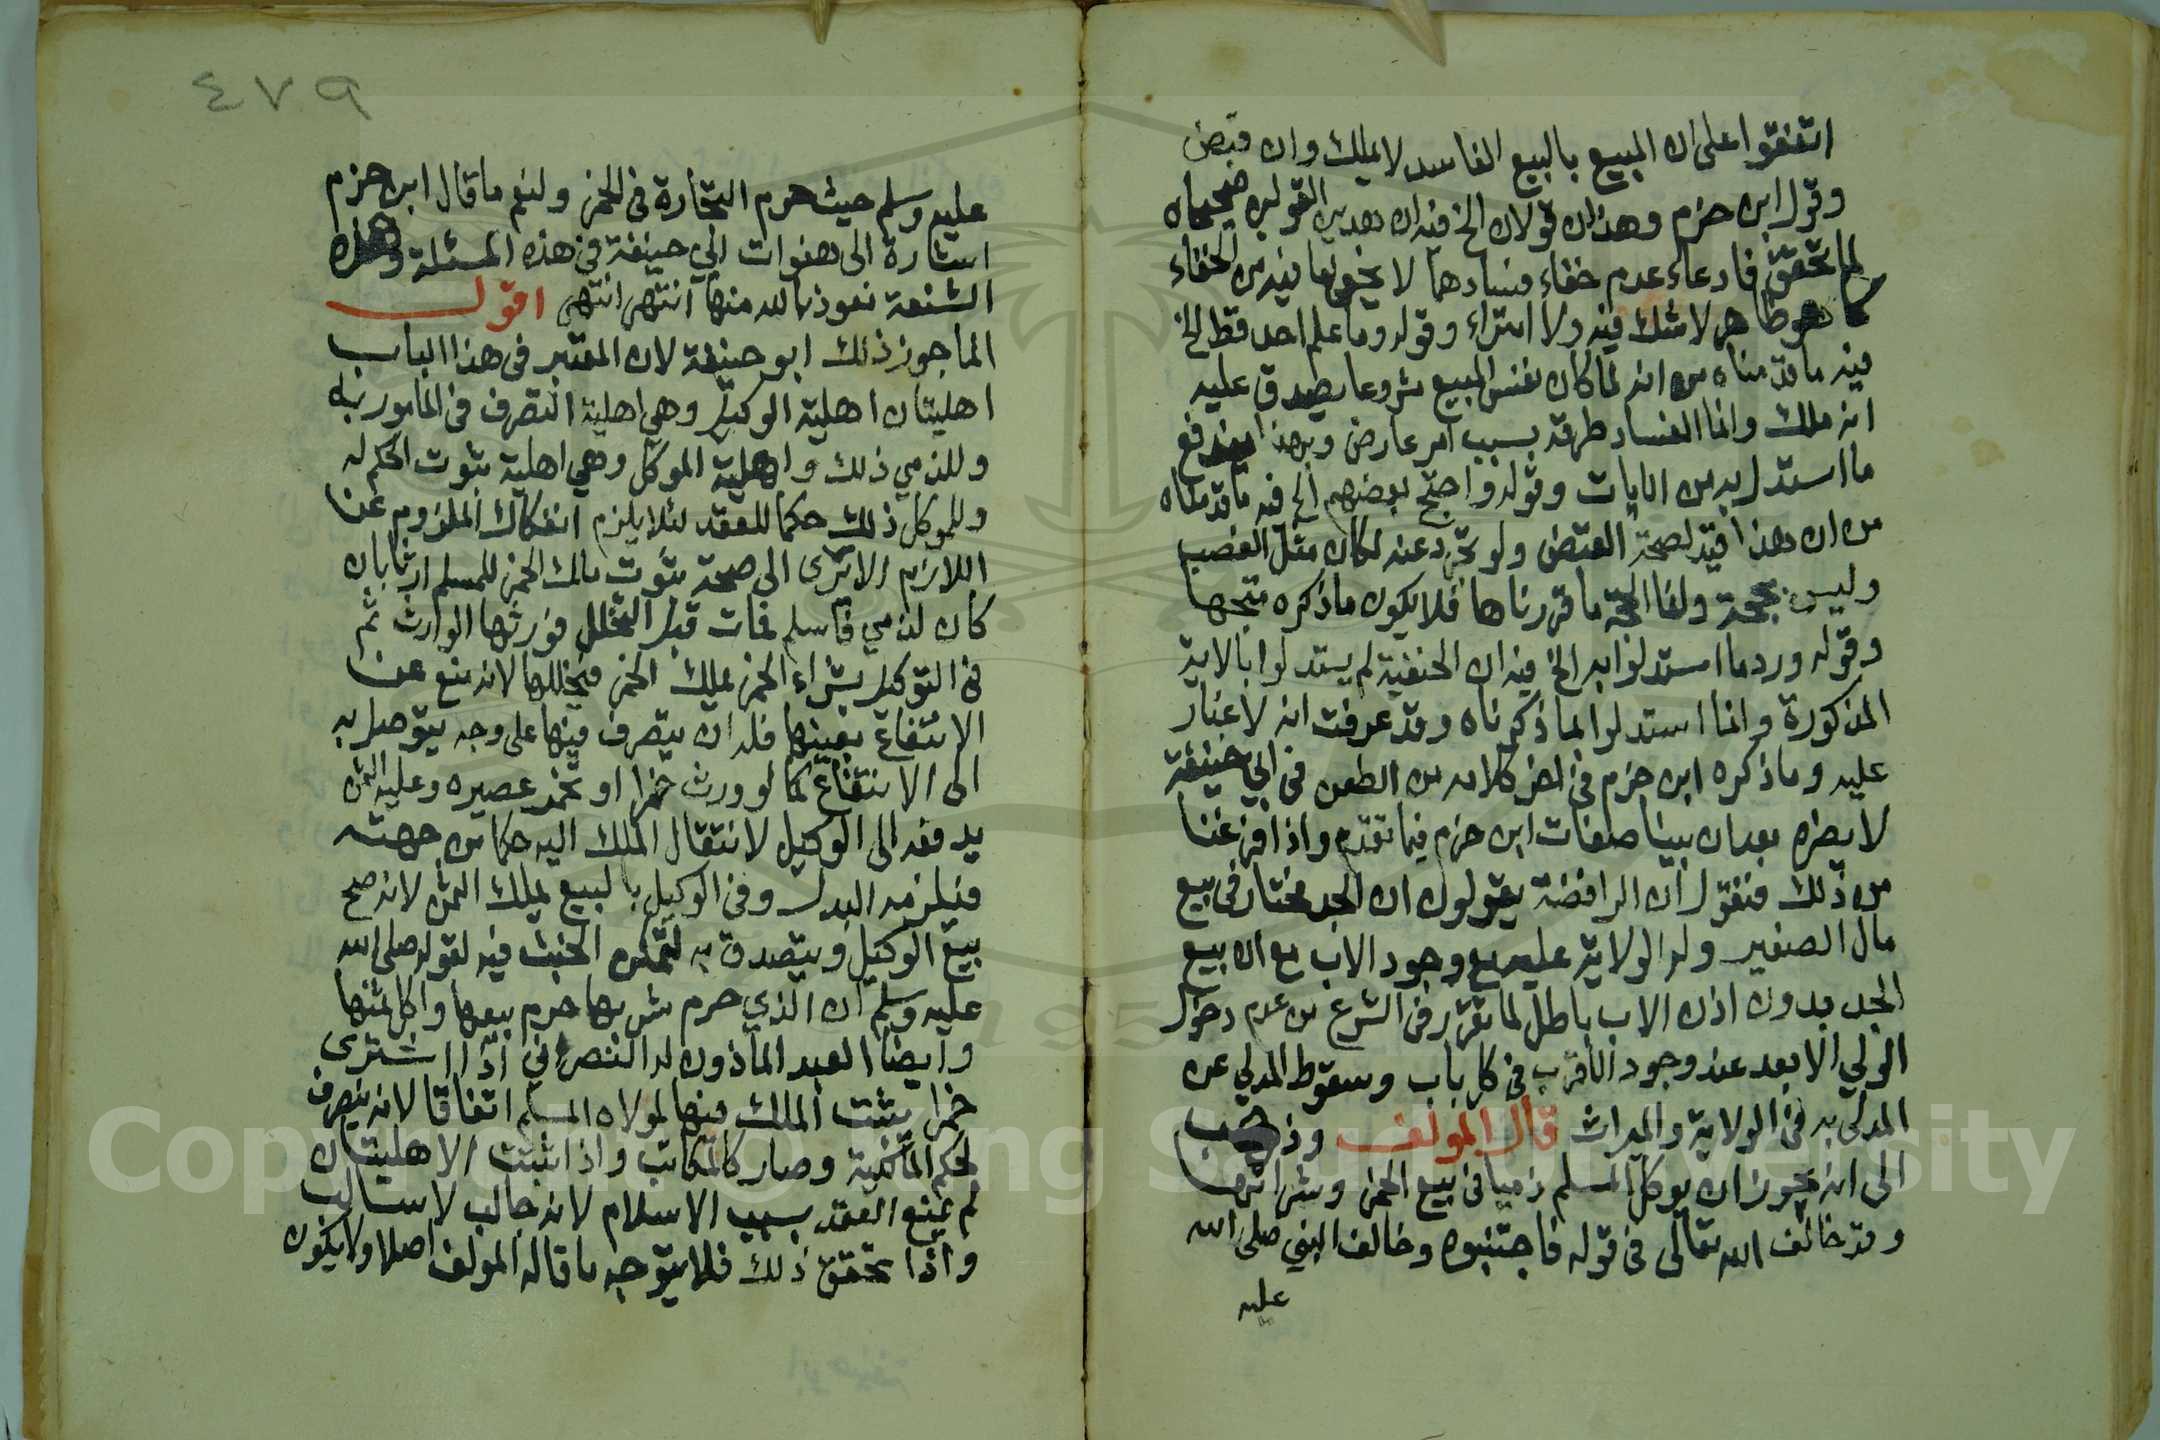 اتفقوا على ان المبيع بالبيع الفاسد لا يملك وان قبض
وقول ابن حزم وهذان قولان الخ فيه ان هذين القولين صحيحان
لما تحقق فادعاء عدم خفاء فسادهما لا يخفى ما فيه من الخفاء
كما هو ظاهر لا شك فيه ولا امتراء وقوله وما علم احد قط الخ
فيه ما قدمناه من انه لما كان نفس المبيع مشروعا يصدق عليه
انه ملك وانما الفساد طرقه بسبب امر عارض وبهذا اندفع
ما استدل به من الايات وقوله واحتج بعضهم الخ فيه ما قدمناه
من ان هذا قيد لصحة القبض ولو تجرد عنه لكان مثل الغصب
وليس بحجة وانما الحجة ما قررناها فلا يكون ما ذكره متجها
وقوله ورد ما استدلوا به الخ فيه ان الحنفية لم يستدلوا بالاية
المذكورة وانما استدلوا بما ذكرناه وقد عرفت انه لا غبار
عليه وما ذكره ابن حزم في اخر كلامه من الطعن في ابي حنيفة
لا يضره بعد ان بينا صلفات ابن حزم فيما تقدم واذا فرغنا
من ذلك فنقول ان الرافضة يقولون ان الجد مختار في بيع
مال الصغير وله الولاية عليه مع وجود الاب مع ان بيع
الجد بدون اذن الاب باطل لما تقرر في الشرع من عدم دخول
الولي الابعد عند وجود الاقرب في كل باب وسقوط المدلي عن
المدلى به في الولاية والميراث قال المولف وذهب
الى انه يجوز ان يوكل المسلم ذميا في بيع الخمر وشرائها
وقد خالف الله تعالى في قوله فاجتنبوه وخالف النبي صلى الله
عليه
٤٧٩
عليه وسلم حيث حرم التجارة في الخمر ولنعم ما قال ابن حزم
اشارة الى هفوات ابي حنيفة في هذه المسئلة وهذه
الشنعة نعوذ بالله منها انتهى انتهى اقول
انما جوز ذلك ابو حنيفة لان المعتبر في هذا الباب
اهليتان اهلية الوكيل وهي اهلية التصرف في المامور به
وللذمي ذلك واهلية الموكل وهي اهلية ثبوت الحكم له
وللموكل ذلك حكما للعقد لئلا يلزم انفكاك الملزوم عن
اللازم الا ترى الى صحة ثبوت ملك الخمر للمسلم ارثا بان
كان لذمي فاسلم فمات قبل التخلل فورثها الوارث ثم
في التوكيل بشراء الخمر يملك الخمر فيخللها لانه منع عن
الانتفاع بعينها فله ان يتصرف فيها على وجه يتوصل به
الى الانتفاع كما لو ورث خمرا او تخمر عصيره وعليه الثمن
يدفعه الى الوكيل لانتقال الملك اليه حكما من جهته
فيلزمه البدل وفي الوكيل بالبيع يملك الثمن لانه صح
بيع الوكيل ويتصدق به لتمكن الخبث فيه لقوله صلى الله
عليه وسلم ان الذي حرم شربها حرم بيعها واكل ثمنها
وايضا العبد الماذون له النصراني اذا اشترى
خمرا يثبت الملك فيها لمولاه المسلم اتفاقا لانه يتصرف
لحكم المالكية وصار كالمكاتب واذا ثبتت الاهليتان
لم يمنع العقد بسبب الاسلام لانه جالب لا سالب
واذا تحقق ذلك فلا يتوجه ما قاله المولف اصلا ولا يكون
Copyright © King Saud University
1957